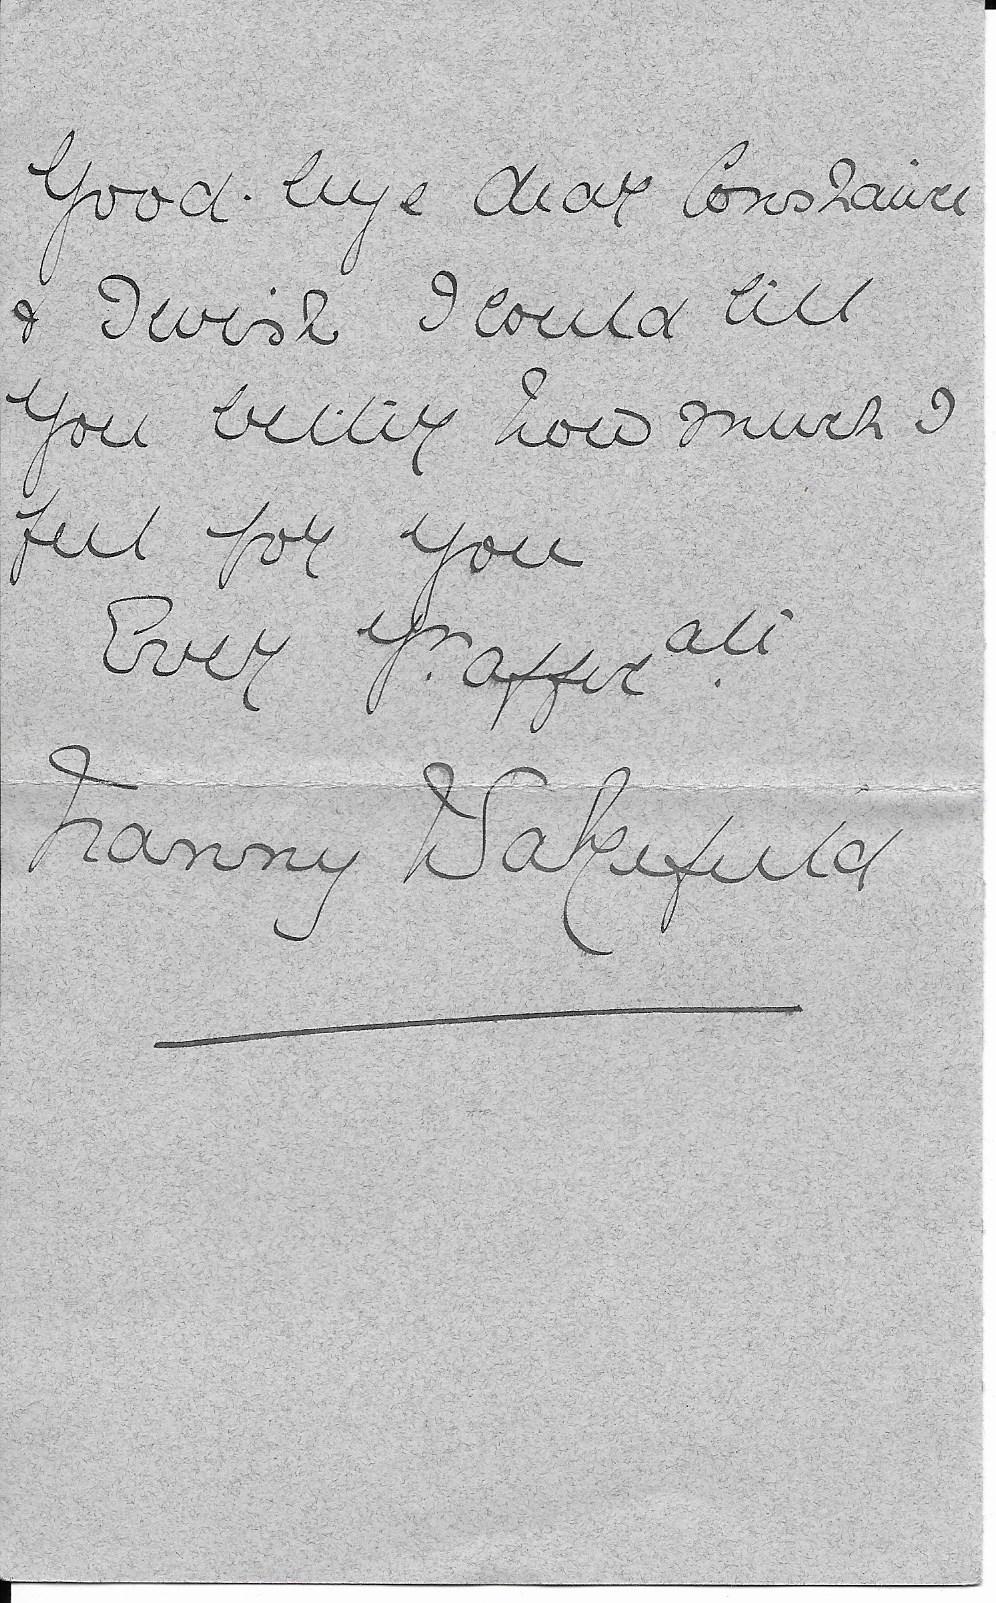 Good-bye dear Constance
& I wish I could tell
you better how much I
feel for you
Ever yr. affec ate.
Franny Wakefield